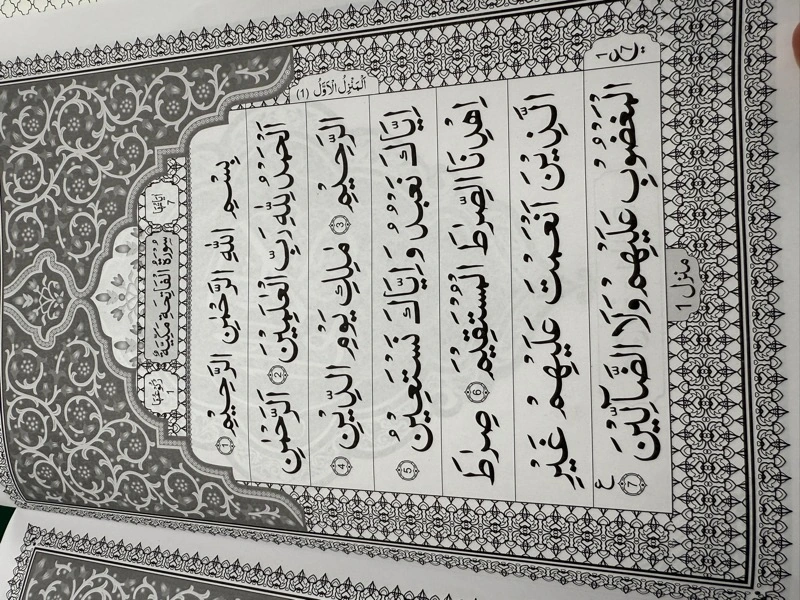 اَلْمَنْزِلُ الْاَوَّلُ (1)
اٰيَاتُهَا 7
سُوْرَةُ الْفَاتِحَةِ مَكِّيَّةٌ
رُكُوْعُهَا 1
بِسْمِ اللّٰهِ الرَّحْمٰنِ الرَّحِيْمِ 1
اَلْحَمْدُ لِلّٰهِ رَبِّ الْعٰلَمِيْنَ 2 الرَّحْمٰنِ
الرَّحِيْمِ 3 مٰلِكِ يَوْمِ الدِّيْنِ 4
اِيَّاكَ نَعْبُدُ وَاِيَّاكَ نَسْتَعِيْنُ 5
اِهْدِنَا الصِّرَاطَ الْمُسْتَقِيْمَ 6 صِرَاطَ
الَّذِيْنَ اَنْعَمْتَ عَلَيْهِمْ غَيْرِ
الْمَغْضُوْبِ عَلَيْهِمْ وَلَا الضَّآلِّيْنَ 7
منزل 1